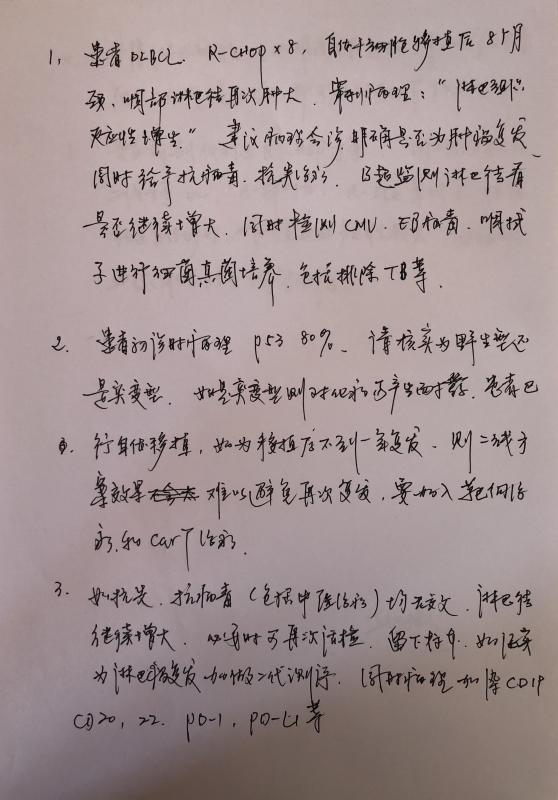 1, 患者DLBCL. R-CHOP×8, 自体干细胞移植后8+月
颈、咽部淋巴结再次肿大. 穿刺病理:"淋巴组织
反应性增生." 建议病理会诊明确是否为肿瘤复发、
同时给予抗病毒. 抗炎治疗. B超监测淋巴结看
是否继续增大. 同时检测CMV. EB病毒. 咽拭
子进行细菌真菌培养. 包括排除TB等.
2. 患者初诊时病理 P53 80%、请核实为野生型还
是突变型. 如是突变型则对化疗易产生耐药. 患者已
行自体移植, 如为移植后不到一年复发. 则二线方
案效果 难以避免再次复发, 要加入靶向治
疗.和CarT治疗.
3. 如抗炎. 抗病毒(包括中医治疗)均无效. 淋巴结
继续增大. 必要时可再次活检. 留下标本. 如证实
为淋巴瘤复发加做二代测序. 同时病理加染CD19
CD20, 22. PD-1, PD-L1等